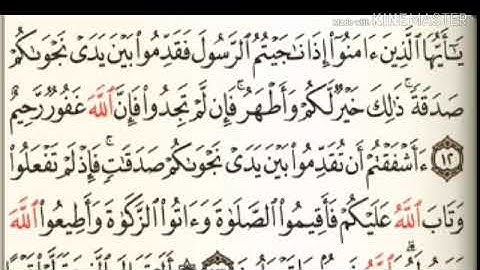 Made with KINEMASTER
يَـٰٓأَيُّهَا ٱلَّذِينَ ءَامَنُوٓا۟ إِذَا نَـٰجَيْتُمُ ٱلرَّسُولَ فَقَدِّمُوا۟ بَيْنَ يَدَىْ نَجْوَىٰكُمْ
صَدَقَةً ۚ ذَٰلِكَ خَيْرٌ لَّكُمْ وَأَطْهَرُ ۚ فَإِن لَّمْ تَجِدُوا۟ فَإِنَّ ٱللَّهَ غَفُورٌ رَّحِيمٌ
١٢ ءَأَشْفَقْتُمْ أَن تُقَدِّمُوا۟ بَيْنَ يَدَىْ نَجْوَىٰكُمْ صَدَقَـٰتٍ ۚ فَإِذْ لَمْ تَفْعَلُوا۟
وَتَابَ ٱللَّهُ عَلَيْكُمْ فَأَقِيمُوا۟ ٱلصَّلَوٰةَ وَءَاتُوا۟ ٱلزَّكَوٰةَ وَأَطِيعُوا۟ ٱللَّهَ